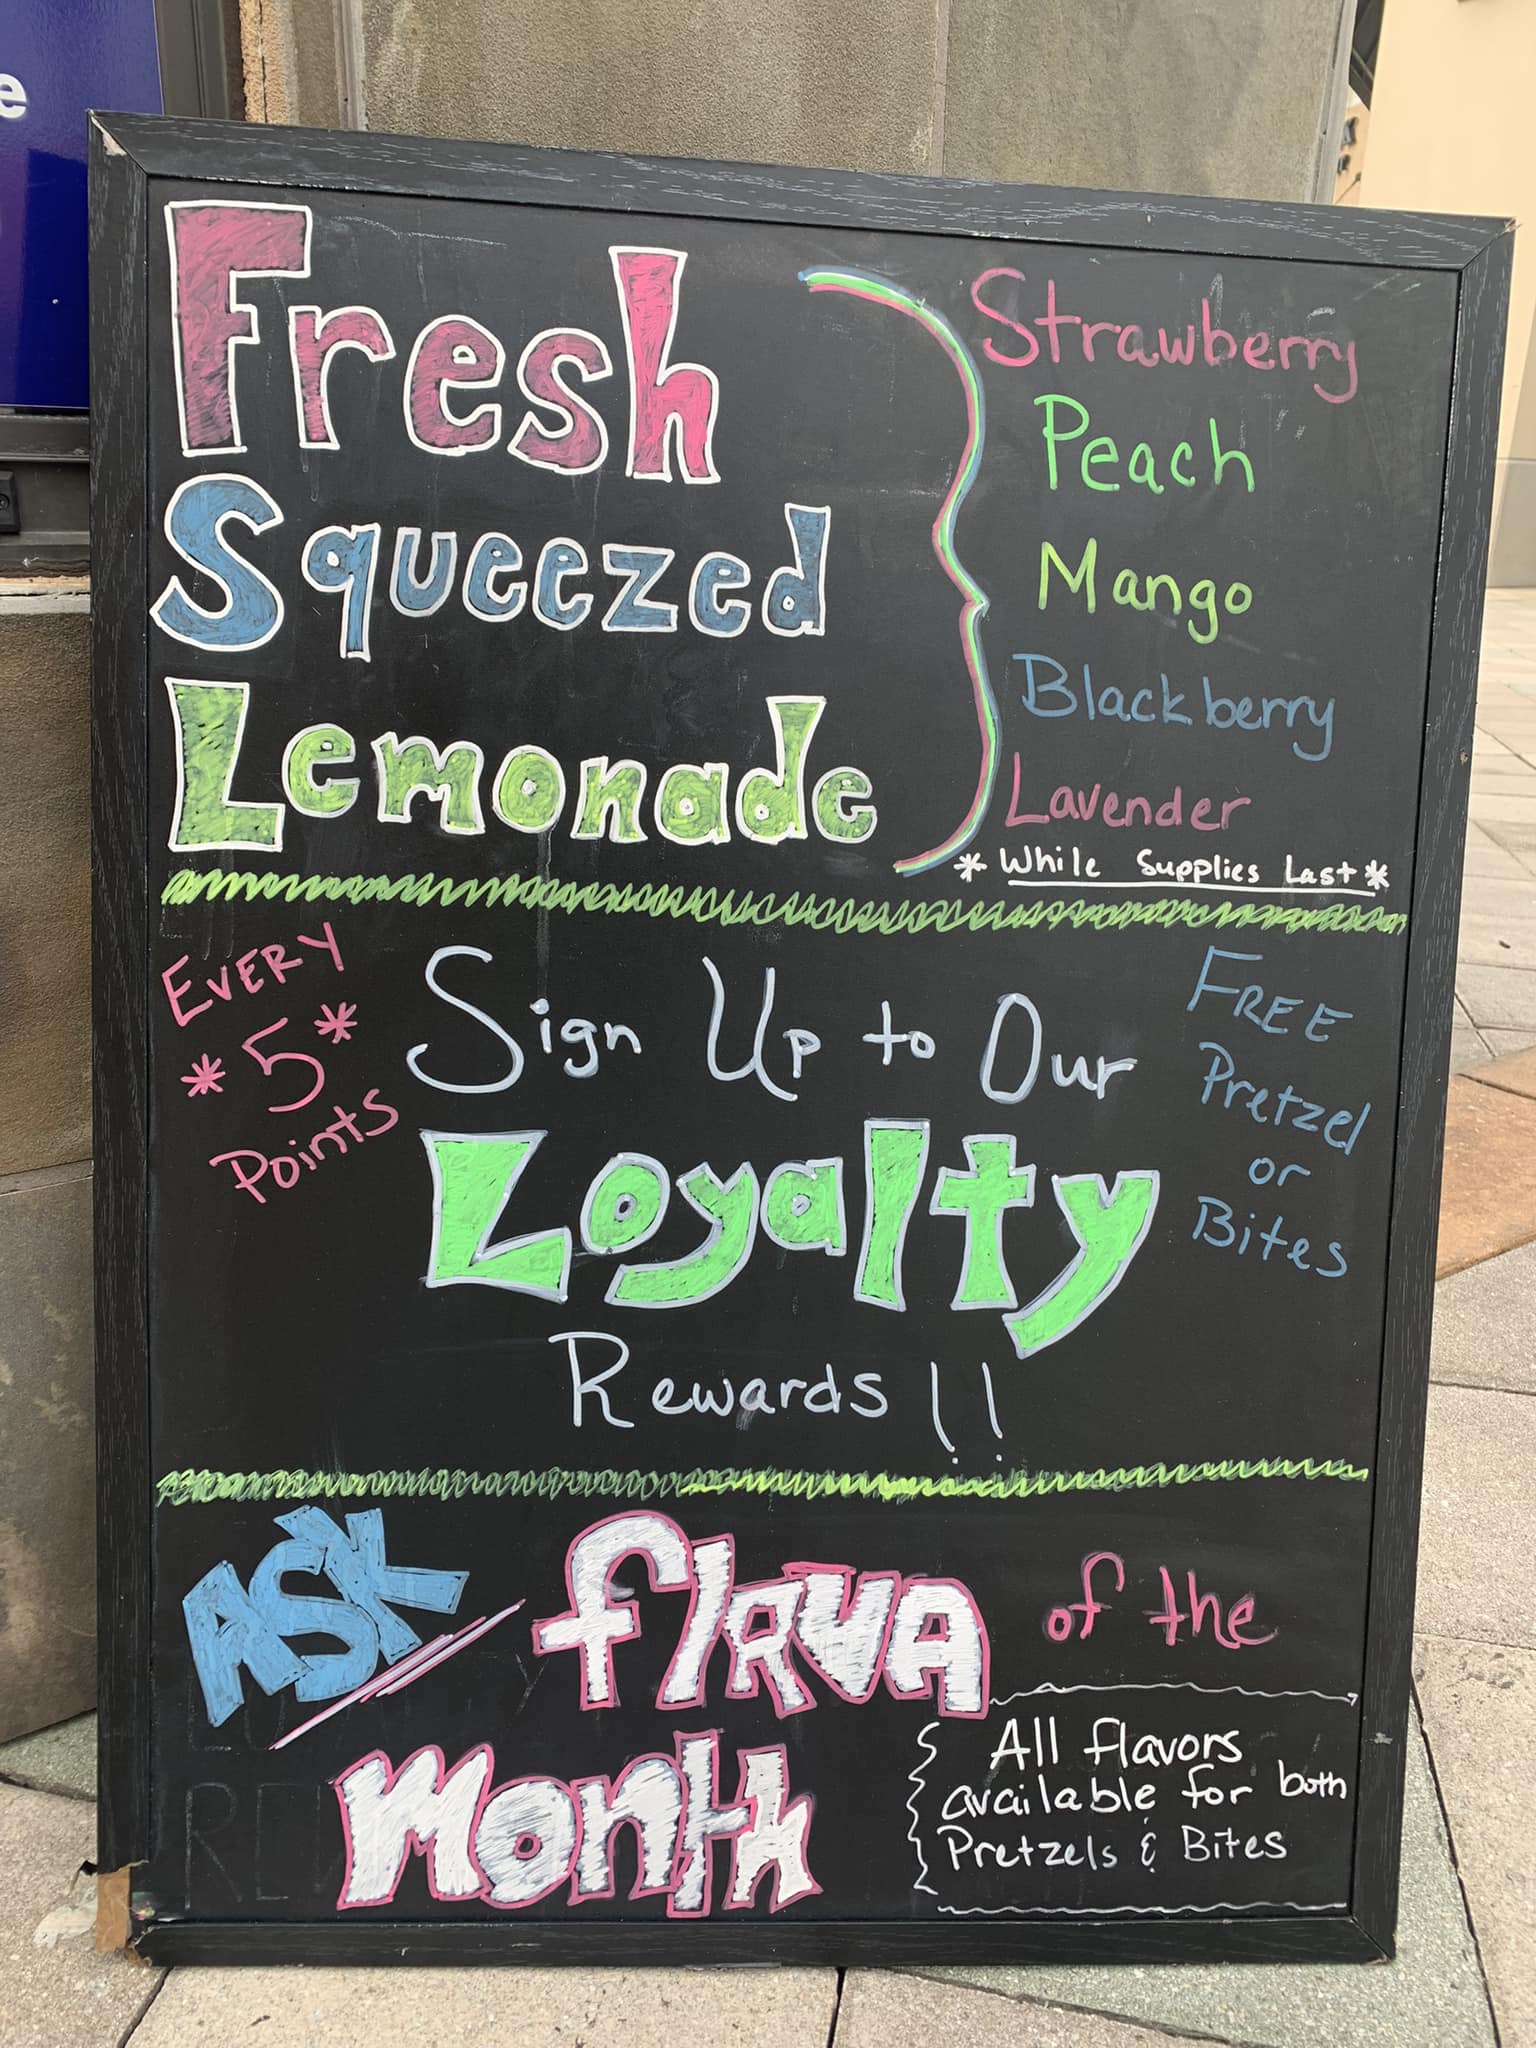 Fresh
Squeezed
Lemonade
Strawberry
Peach
Mango
Blackberry
Lavender
* While Supplies Last *
EVERY
*5*
Points
Sign Up to Our
Loyalty
Rewards!!
FREE
Pretzel
or
Bites
ASK / flAVA of the
month
All flavors
available for both
Pretzels & Bites
e